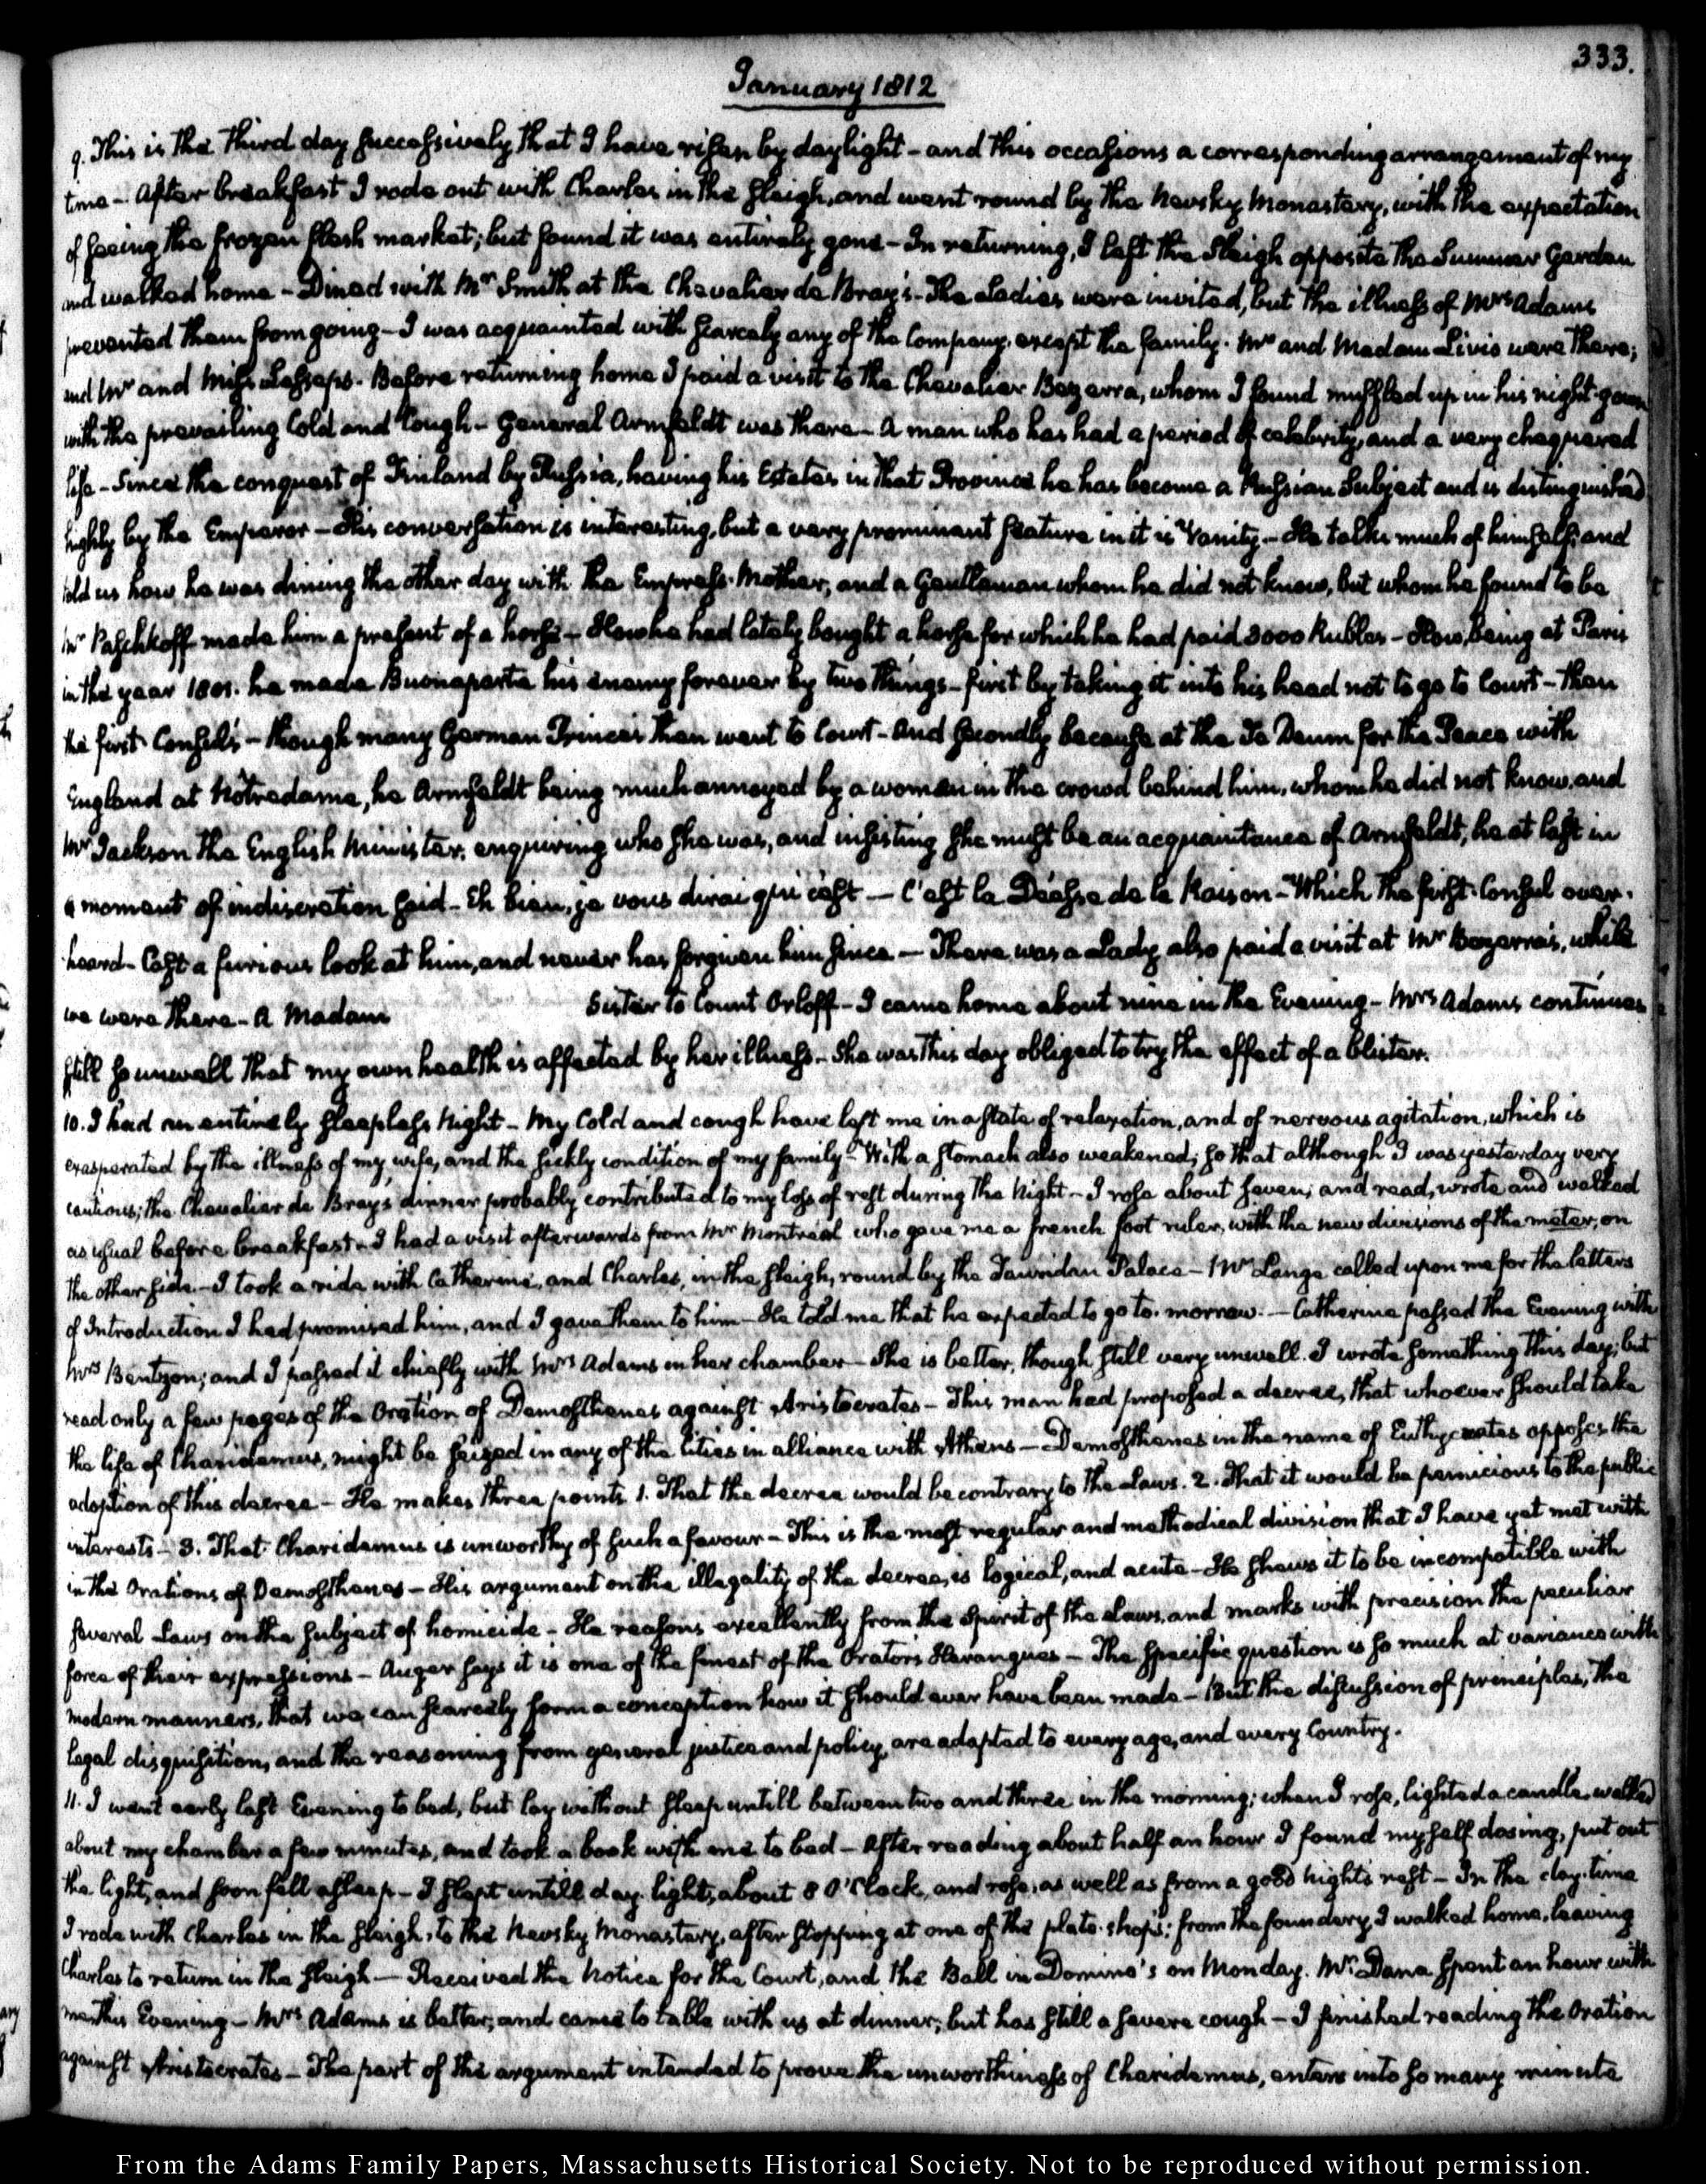 333.
January 1812
9. This is the third day successively that I have risen by daylight - and this occasions a corresponding arrangement of my
time - After breakfast I rode out with Charles in the sleigh, and went round by the Nevsky Monastery, with the expectation
of seeing the frozen flesh market; but found it was entirely gone - In returning, I left the Sleigh opposite the Summer Garden
and walked home - Dined with Mr Smith at the Chevalier de Bray's - The Ladies were invited, but the illness of Mrs Adams
prevented them from going - I was acquainted with scarcely any of the Company, except the family. Mr and Madam Livio were there;
and Mr and Miss Lesseps. Before returning home I paid a visit to the Chevalier Bezerra, whom I found muffled up in his night-gown
with the prevailing Cold and Cough - General Armfeldt was there - A man who has had a period of celebrity, and a very chequered
life - Since the conquest of Finland by Russia, having his Estates in that Province he has become a Russian Subject and is distinguished
highly by the Emperor - His conversation is interesting, but a very prominent feature in it is Vanity. - He talks much of himself; and
told us how he was dining the other day with the Empress-Mother, and a Gentleman whom he did not know, but whom he found to be
Mr Paschkoff made him a present of a horse - How he had lately bought a horse for which he had paid 3000 Rubles - How, being at Paris
in the year 1801. he made Buonaparte his enemy forever by two things - first by taking it into his head not to go to Court - then
the first Consul's - though many German Princes then went to Court - And secondly because at the Te Deum for the Peace with
England at Nôtredame, he Armfeldt being much annoyed by a woman in the crowd behind him, whom he did not know, and
Mr Jackson the English Minister, enquiring who she was, and insisting she must be an acquaintance of Armfeldt, he at last in
a moment of indiscretion said - Eh bien, je vous dirai qui c'est - C'est la Déesse de la Raison - Which the first Consul over-
heard - Cast a furious look at him, and never has forgiven him since. - There was a Lady also paid a visit at Mr Bezerra's, while
we were there - A Madam Sister to Count Orloff - I came home about nine in the Evening - Mrs Adams continues
still so unwell that my own health is affected by her illness. - She was this day obliged to try the effect of a blister.
10. I had an entirely sleepless Night - My Cold and cough have left me in a state of relaxation, and of nervous agitation, which is
exasperated by the illness of my wife, and the sickly condition of my family - With a stomach also weakened; so that although I was yesterday very
cautious; the Chevalier de Bray's dinner probably contributed to my loss of rest during the Night - I rose about seven; and read, wrote and walked
as usual before breakfast. I had a visit afterwards from Mr Montréal who gave me a french foot ruler, with the new divisions of the meter, on
the other side - I took a ride with Catherine, and Charles, in the sleigh, round by the Tauridan Palace - Mr Lange called upon me for the letters
of Introduction I had promised him, and I gave them to him - He told me that he expected to go to-morrow. - Catherine passed the Evening with
Mrs Bentzon; and I passed it chiefly with Mrs Adams in her chamber - She is better, though still very unwell. I wrote something this day; but
read only a few pages of the Oration of Demosthenes against Aristocrates - This man had proposed a decree, that whoever should take
the life of Charidemus, might be seized in any of the Cities in alliance with Athens - Demosthenes in the name of Euthycrates opposes the
adoption of this decree - He makes three points 1. That the decree would be contrary to the Laws. 2. That it would be pernicious to the public
interests - 3. That Charidemus is unworthy of such a favour - This is the most regular and methodical division that I have yet met with
in the Orations of Demosthenes - His argument on the illegality of the decree, is logical, and acute - He shews it to be incompatible with
several Laws on the subject of homicide - He reasons excellently from the Spirit of the Laws, and marks with precision the peculiar
force of their expressions - Auger says it is one of the finest of the Orator's Harangues - The specific question is so much at variance with
modern manners, that we can scarcely form a conception how it should ever have been made - But the discussion of principles, the
legal disquisition, and the reasoning from general justice and policy, are adapted to every age, and every Country.
11. I went early last Evening to bed, but lay without sleep untill between two and three in the morning; when I rose, lighted a candle, walked
about my chamber a few minutes, and took a book with me to bed - After reading about half an hour I found myself dosing, put out
the light, and soon fell asleep - I slept untill day-light, about 8 O'Clock, and rose, as well as from a good night's rest - In the day-time
I rode with Charles in the sleigh, to the Nevsky Monastery, after stopping at one of the plate-shops: from the foundery I walked home, leaving
Charles to return in the sleigh - Received the Notice for the Court, and the Ball in Domino's on Monday. Mr Dana spent an hour with
me this Evening - Mrs Adams is better, and came to table with us at dinner; but has still a severe cough - I finished reading the Oration
against Aristocrates - The part of the argument intended to prove the unworthiness of Charidemus, enters into so many minute
From the Adams Family Papers, Massachusetts Historical Society. Not to be reproduced without permission.